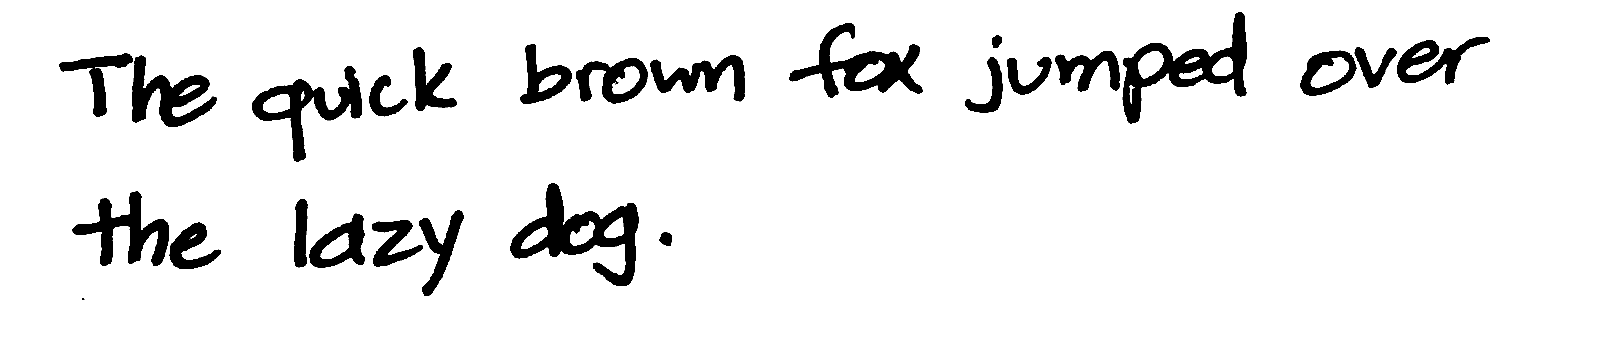 The quick brown fox jumped over
the lazy dog.